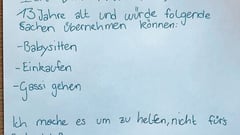 13 Jahre alt und würde folgende
Sachen übernehmen können:
-Babysitten
-Einkaufen
-Gassi gehen
Ich mache es um zu helfen, nicht fürs